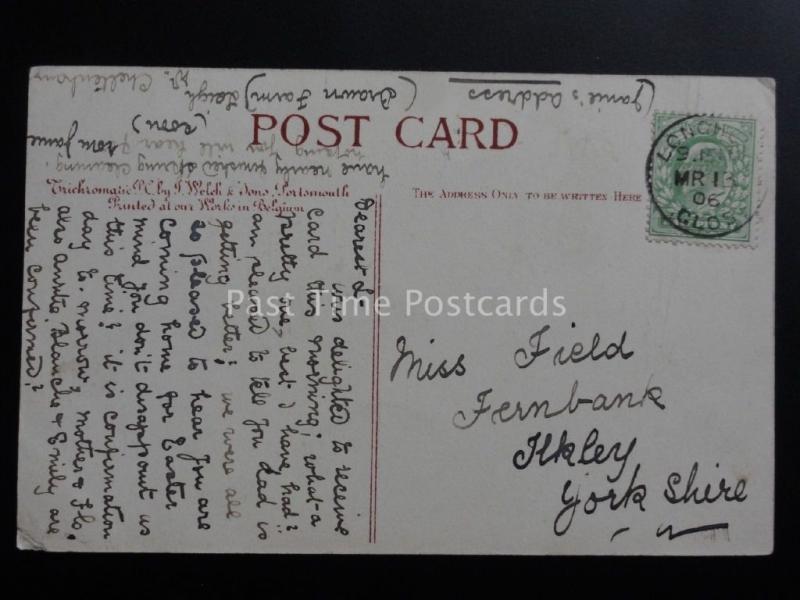 POST CARD
Trichromatic P.C. by J. Welch & Sons, Portsmouth
Printed at our Works in Belgium
THE ADDRESS ONLY TO BE WRITTEN HERE
MR 13
06
GLOS
Miss Field
Fernbank
Ilkley
York Shire
Dearest L
was delighted to receive
card this morning, what a
pretty one, best I have had!!
am pleased to tell you Dad is
getting better; we were all
so pleased to hear you are
coming home for Easter
mind you don't disappoint us
this time; it is confirmation
day to-morrow, mother & Flo.
also Blanche & Emily are
been confirmed?
have nearly finished spring cleaning.
hoping you will hear from Jane
(soon)
(Janie's address)
(Brown Farm) Leigh
Nr. Cheltenham
Past Time Postcards